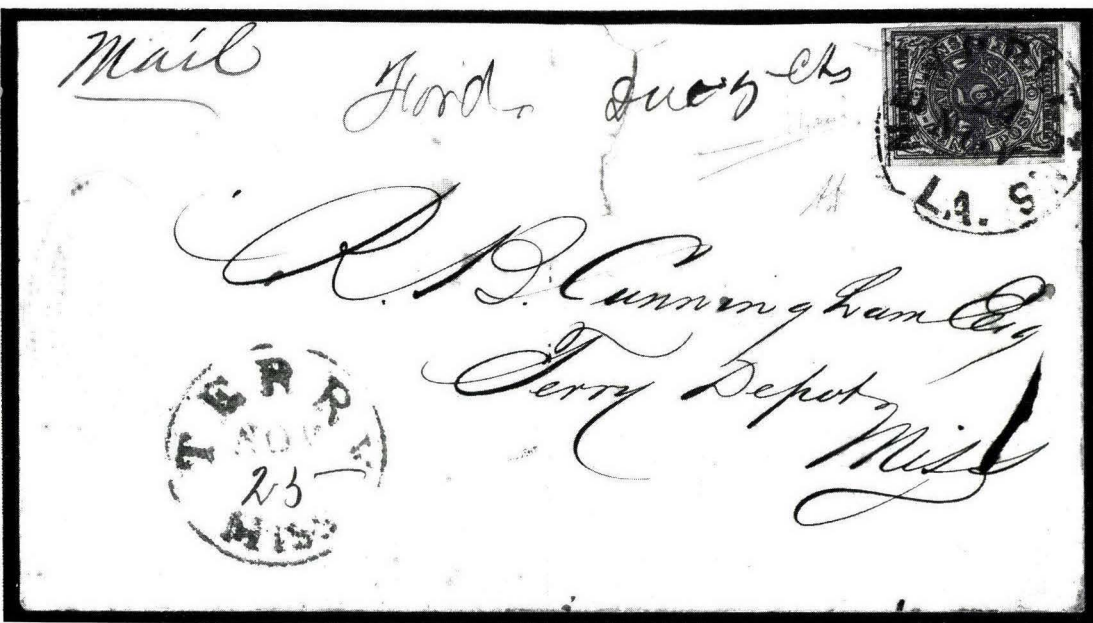 Mail
Ford. Due 5 cts
LA. S
R. B. Cunningham Esq
Terry Depot,
Miss
TERRY
NOV
25
MISS